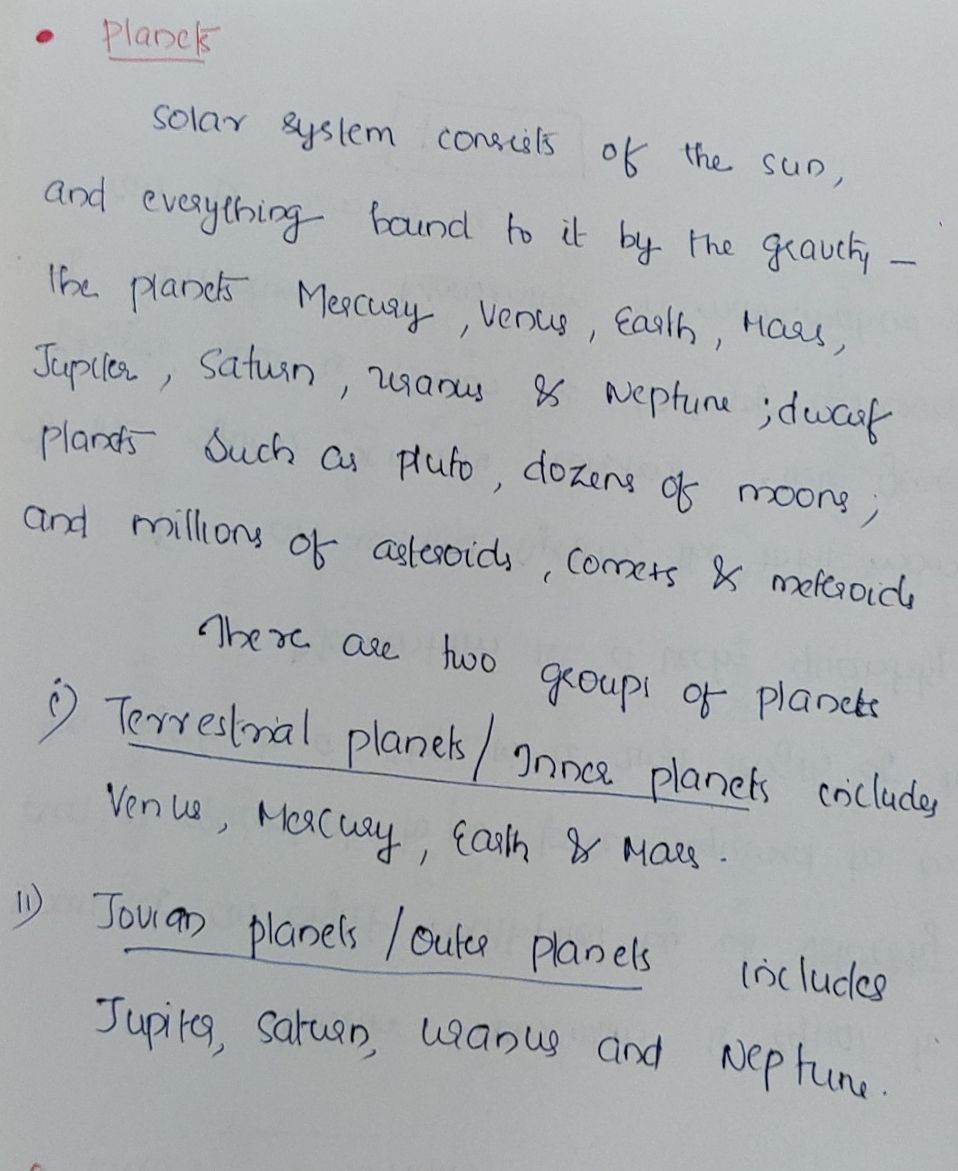 • Planets
Solar system consists of the sun,
and everything bound to it by the gravity –
the planets Mercury, Venus, Earth, Mars,
Jupiter, Saturn, Uranus & Neptune ; dwarf
planets such as pluto, dozens of moons;
and millions of asteroids, comets & meteroids
There are two groups of planets
i) Terrestrial planets/ Inner planets includes
Venus, Mercury, Earth & Mars.
ii) Jovian planets / outer planets includes
Jupiter, Saturn, Uranus and Neptune.